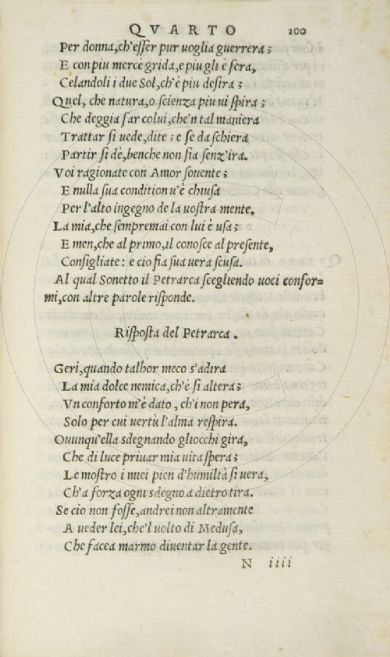 QVARTO 100
Per donna, ch'esser pur uoglia guerrera;
E con piu merce grida, e piu gli è fera,
Celandoli i due Sol, ch'è piu desira;
Quel, che natura, o scienza piu ui spira;
Che deggia far colui, che'n tal maniera
Trattar si uede, dite: e se da schiera
Partir si dè, benche non sia senz'ira.
Voi ragionate con Amor souente;
E nulla sua condition u'è chiusa
Per l'alto ingegno de la uostra mente.
La mia, che sempremai con lui è usa;
E men, che al primo, il conosce al presente,
Consigliate: e cio fia sua uera scusa.
Al qual Sonetto il Petrarca scegliendo uoci confor-
mi, con altre parole risponde.
Risposta del Petrarca.
Geri, quando talhor meco s'adira
La mia dolce nemica, ch'è si altera;
Vn conforto m'è dato, ch'i non pera,
Solo per cui uertù l'alma respira.
Ouunqu'ella sdegnando gliocchi gira,
Che di luce priuar mia uita spera;
Le mostro i miei pien d'humiltà si uera,
Ch'a forza ogni sdegno a dietro tira.
Se cio non fosse, andrei non altramente
A ueder lei, che'l uolto di Medusa,
Che facea marmo diuentar la gente.
N iiii